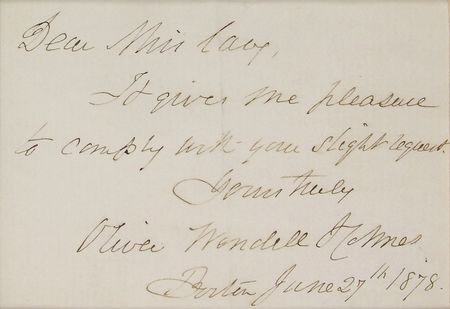 Dear Miss
It gives me pleasure
to comply with your slight request.
Yours truly
Oliver Wendell Holmes
Boston June 27th 1878.